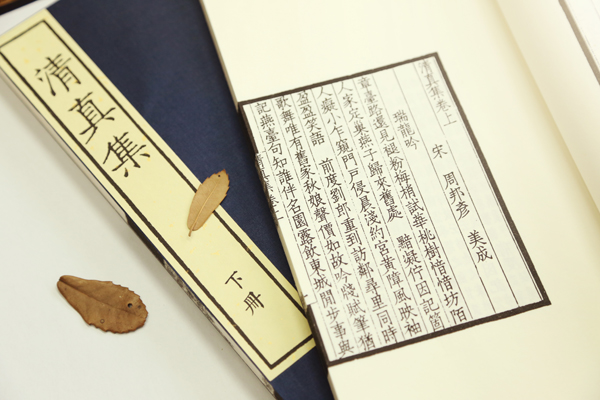 清真集
下冊
清真集卷上
宋 周邦彥 美成
瑞龍吟
章臺路還見褪粉梅梢試華桃樹愔愔坊陌
人家定巢燕子歸來舊處 黯凝佇因記箇
人癡小乍窺門戶侵晨淺約宮黃障風映袖
盈盈笑語 前度劉郎重到訪鄰尋里同時
歌舞唯有舊家秋娘聲價如故吟牋賦筆猶
記燕臺句知誰伴名園露飲東城閒步事與